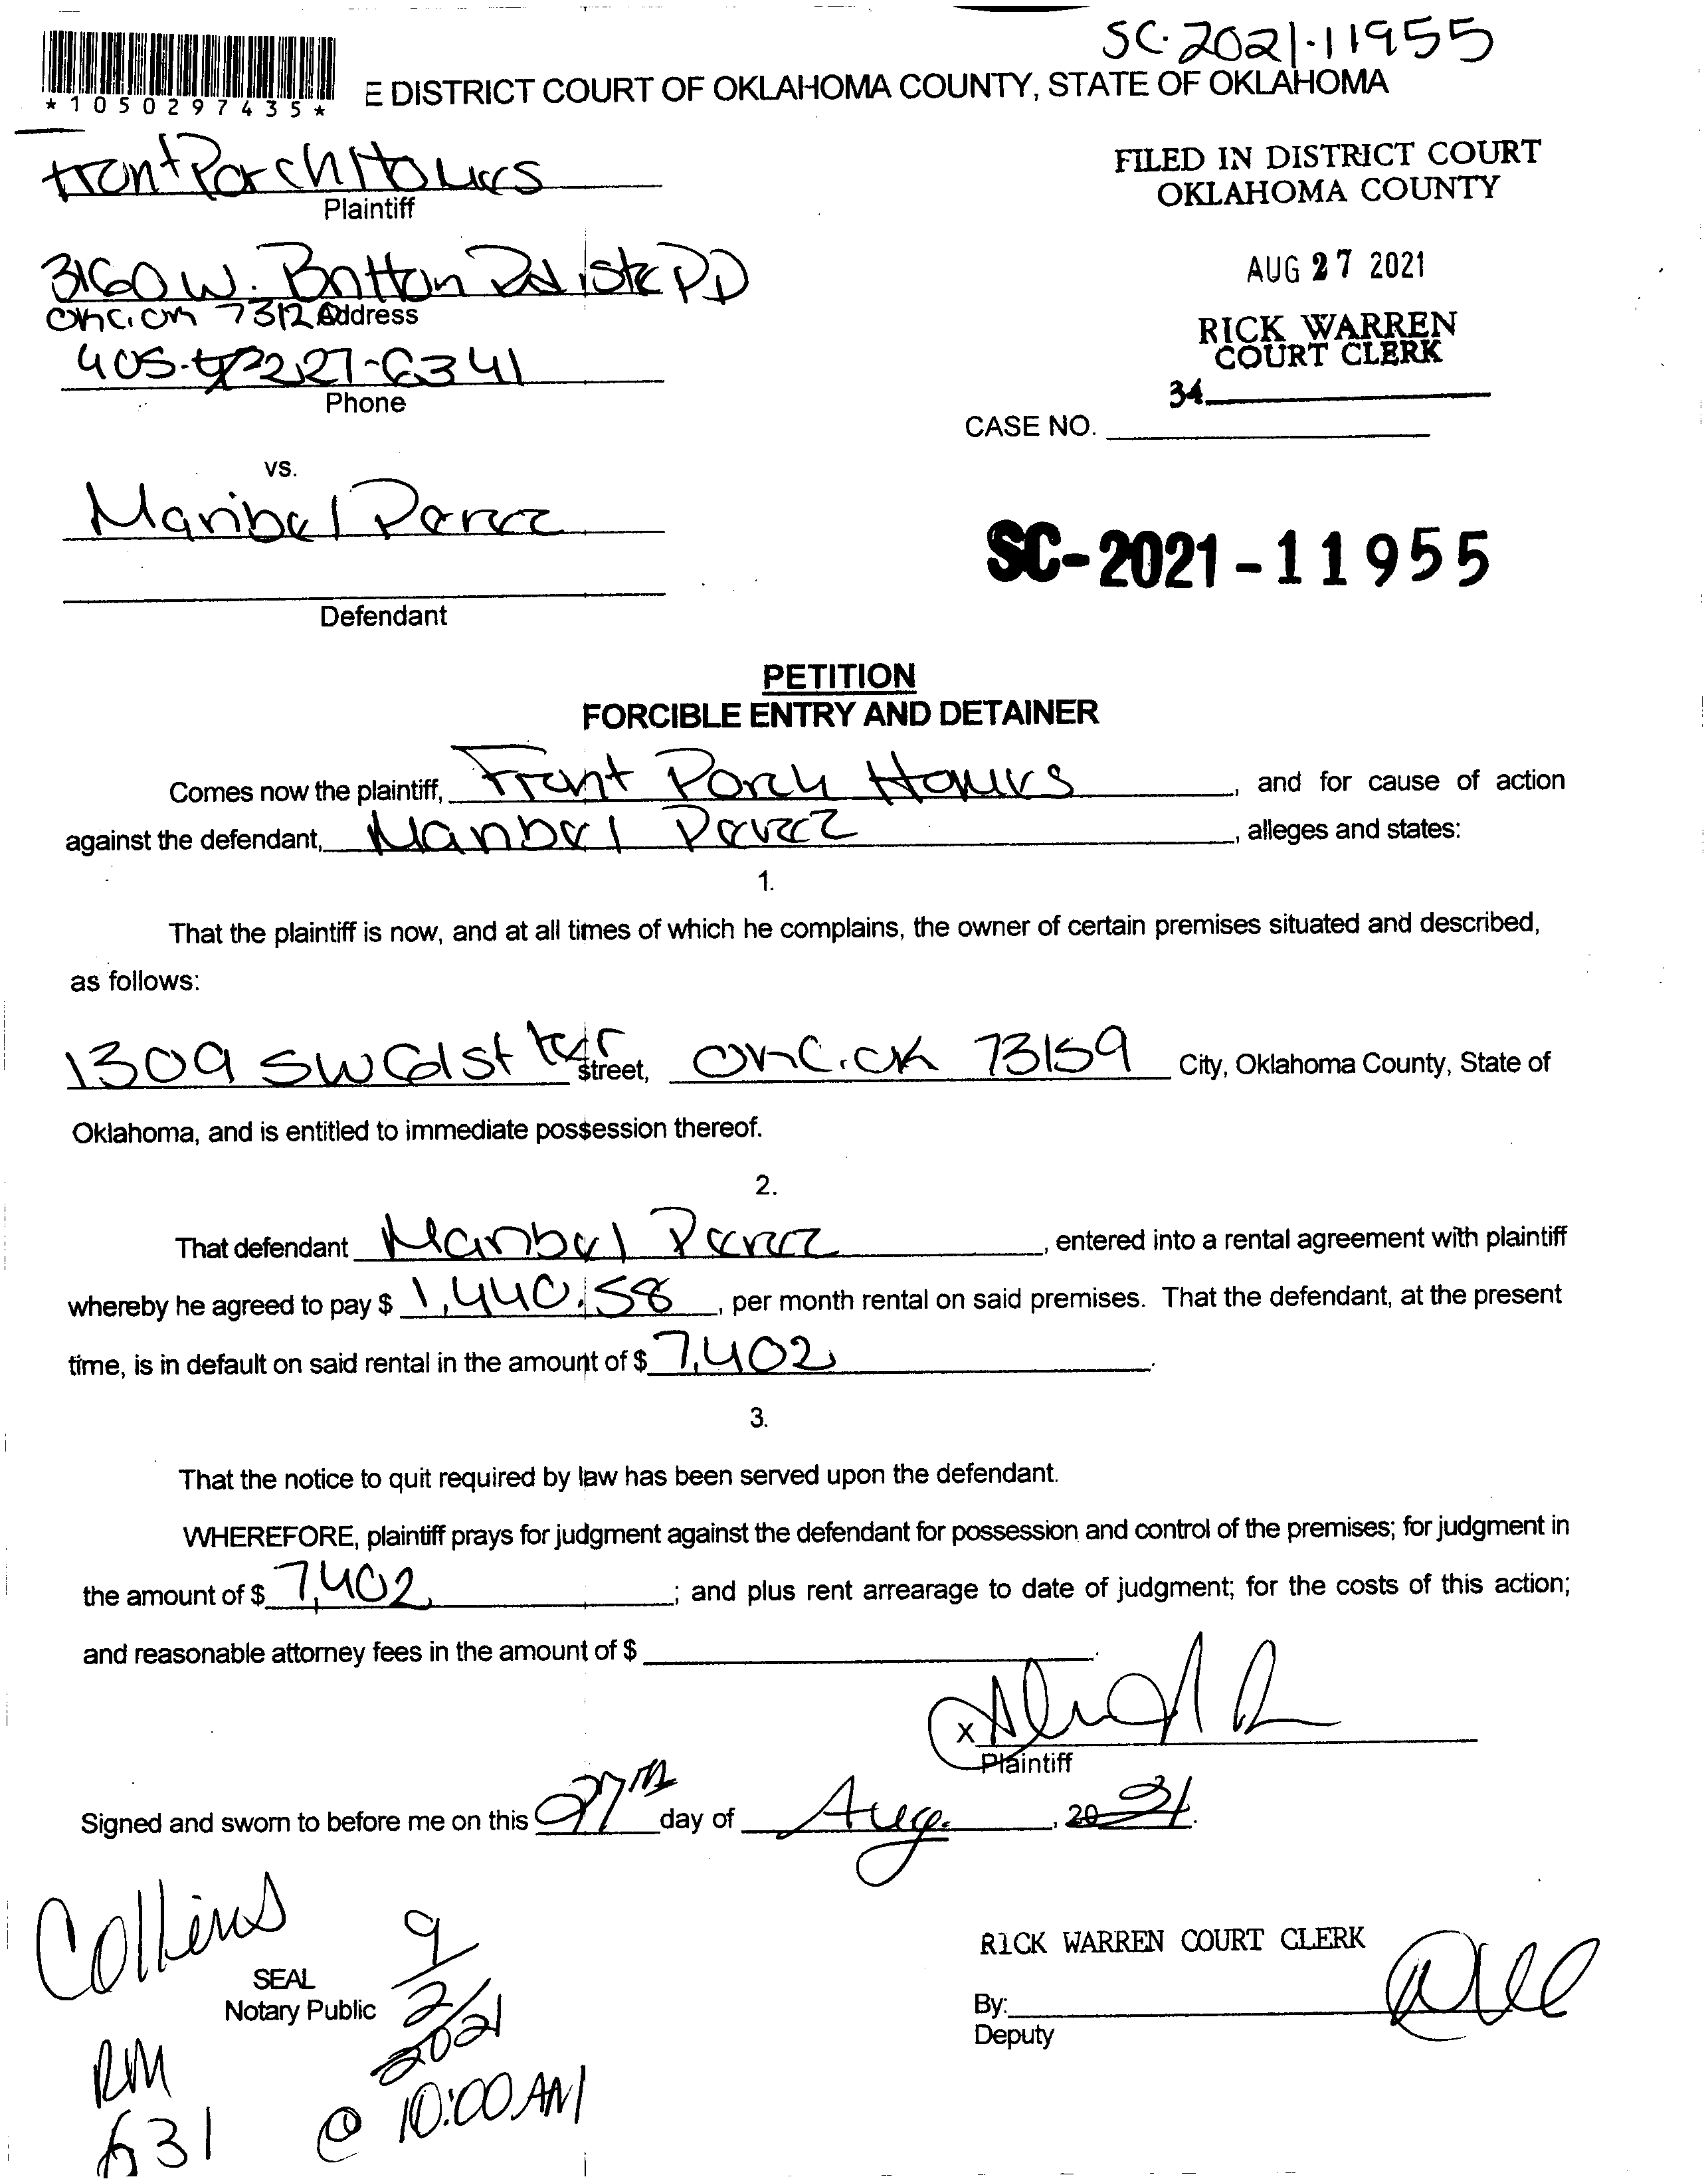 SC-2021-11955
*1050297435*
E DISTRICT COURT OF OKLAHOMA COUNTY, STATE OF OKLAHOMA
Front Porch Homes
Plaintiff
FILED IN DISTRICT COURT
OKLAHOMA COUNTY
3160 W. Britton Rd Ste D
OKC, OK 73120 Address
AUG 27 2021
RICK WARREN
COURT CLERK
405-227-6341
Phone
34
CASE NO.
vs.
Maribel Perez
SC-2021-11955
Defendant
PETITION
FORCIBLE ENTRY AND DETAINER
Comes now the plaintiff, Front Porch Homes, and for cause of action
against the defendant, Maribel Perez, alleges and states:
1.
That the plaintiff is now, and at all times of which he complains, the owner of certain premises situated and described,
as follows:
1309 SW 61st ter Street, OKC, OK 73159 City, Oklahoma County, State of
Oklahoma, and is entitled to immediate possession thereof.
2.
That defendant Maribel Perez, entered into a rental agreement with plaintiff
whereby he agreed to pay $ 1,440.58, per month rental on said premises. That the defendant, at the present
time, is in default on said rental in the amount of $ 7,402.
3.
That the notice to quit required by law has been served upon the defendant.
WHEREFORE, plaintiff prays for judgment against the defendant for possession and control of the premises; for judgment in
the amount of $ 7,402; and plus rent arrearage to date of judgment; for the costs of this action;
and reasonable attorney fees in the amount of $
X
Plaintiff
Signed and sworn to before me on this 27th day of Aug., 2021.
Collins
SEAL
Notary Public
9/2/2021
RICK WARREN COURT CLERK
By:
Deputy
RM
631
@ 10:00 AM